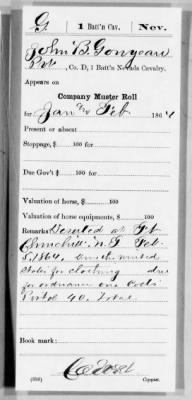 G | 1 Batt'n Cav. | Nev.
John B Gonyeau
Pvt, Co. D, 1 Batt'n Nevada Cavalry.
Appears on
Company Muster Roll
for Jan & Feb, 1864
Present or absent
Stoppage, $ 100 for
Due Gov't $ 100 for
Valuation of horse, $ 100
Valuation of horse equipments, $ 100
Remarks: Deserted at Ft
Churchill N.T. Feb.
5, 1864. United
States for clothing due
for ordnance one Colts
Pistol 40.
Book mark:
(358) Copyist.